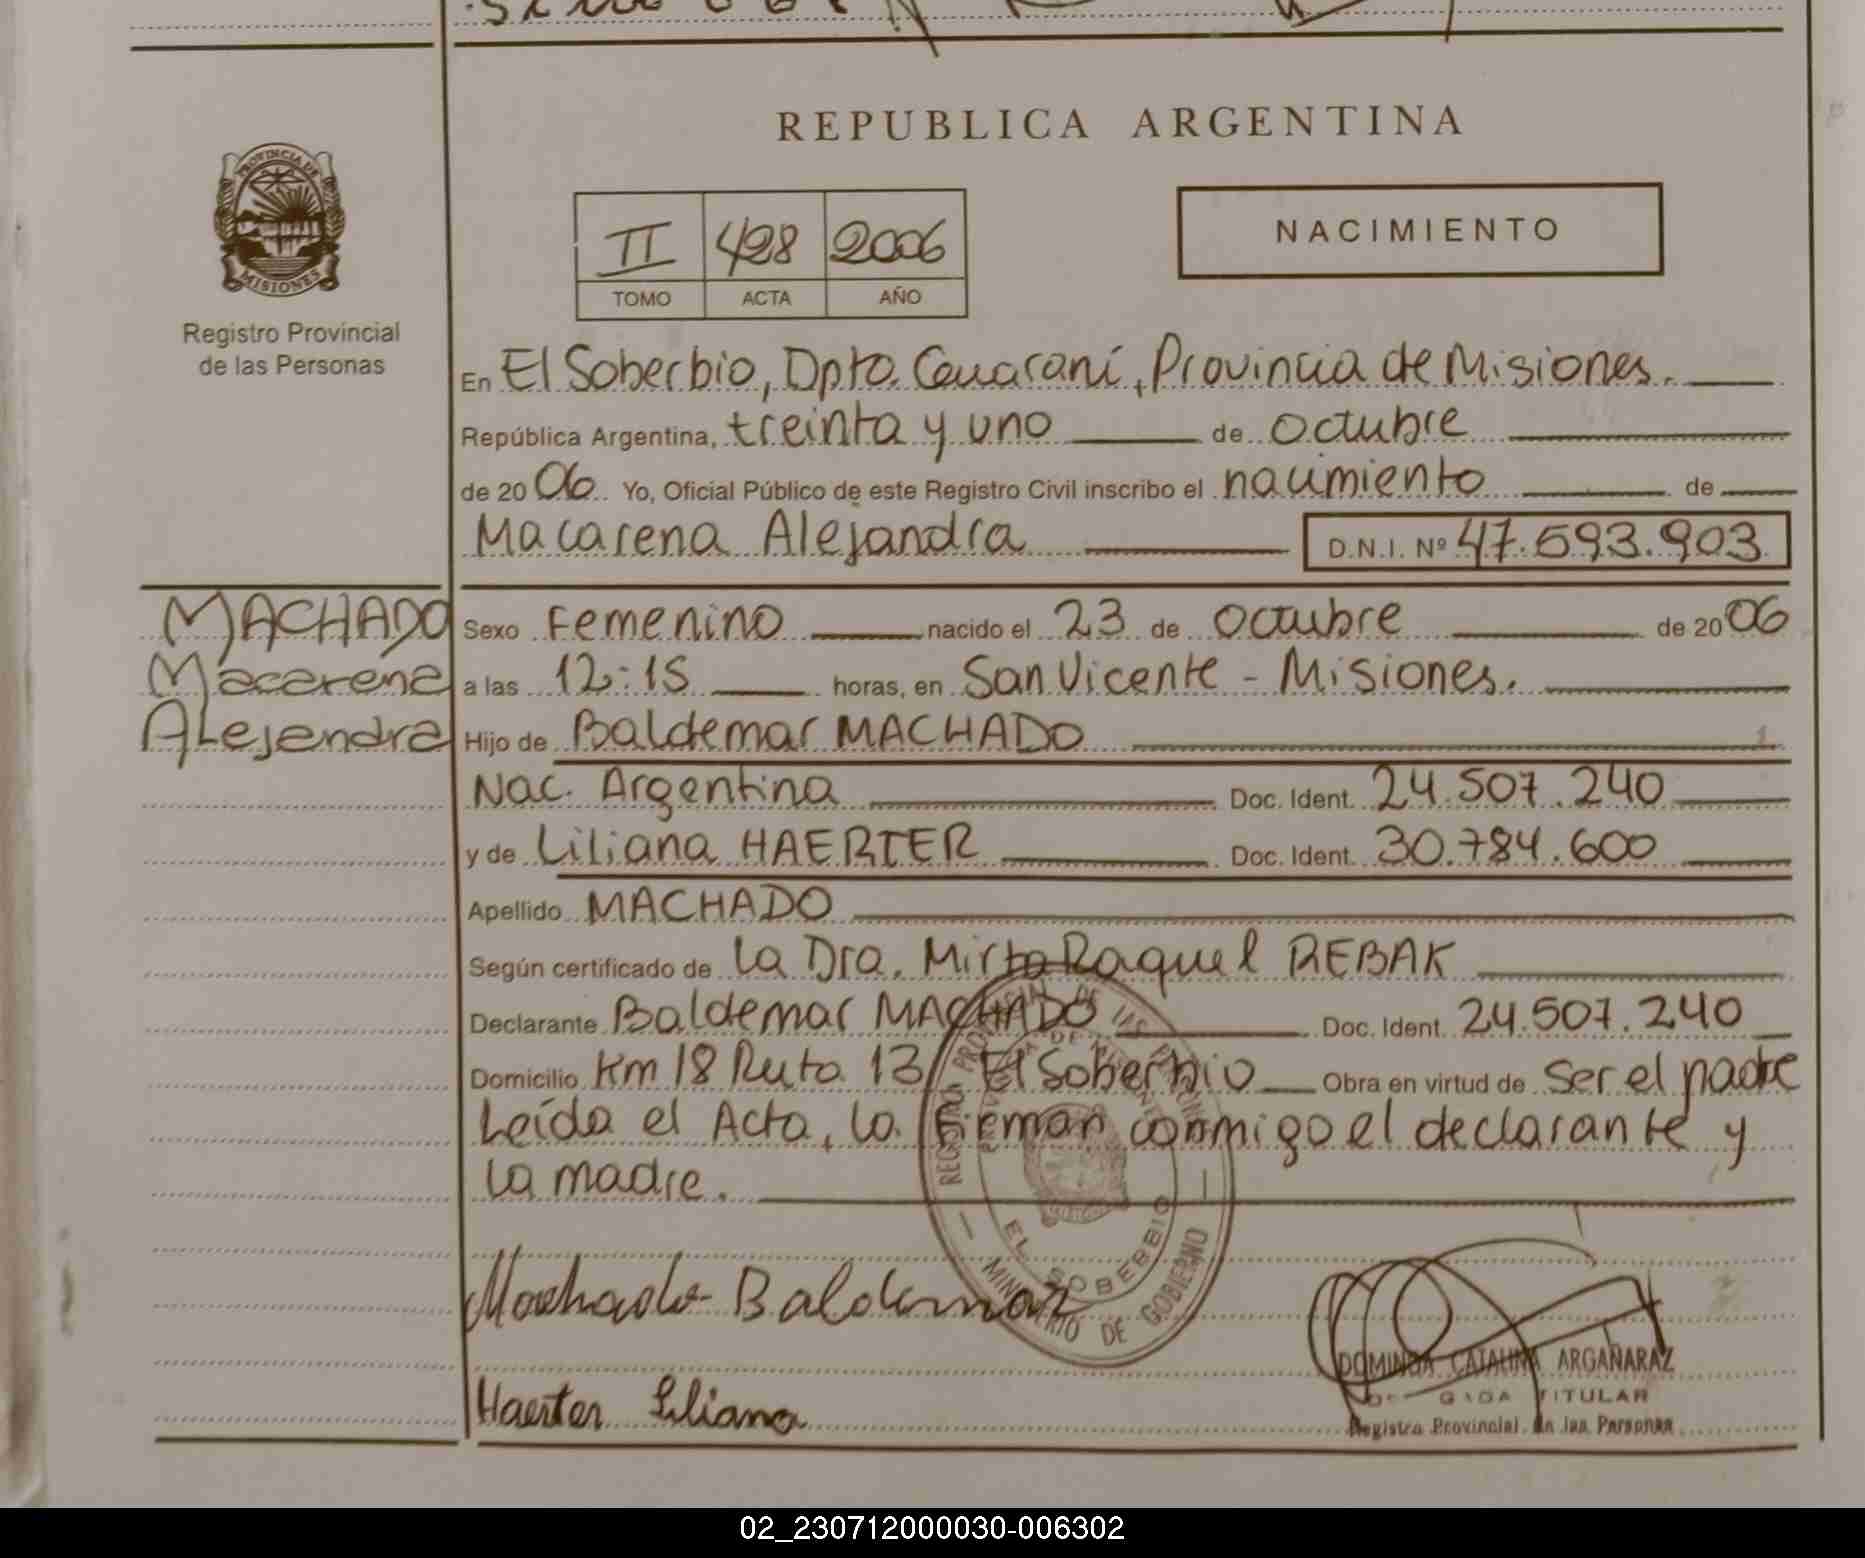 REPUBLICA ARGENTINA
PROVINCIA DE
MISIONES
Registro Provincial
de las Personas
II 428 2006
TOMO ACTA AÑO
NACIMIENTO
En El Soberbio, Dpto. Guaraní, Provincia de Misiones.
República Argentina, treinta y uno de octubre
de 2006 Yo, Oficial Público de este Registro Civil inscribo el nacimiento de
Macarena Alejandra D.N.I. Nº 47.593.903
MACHADO
Macarena
Alejandra
Sexo Femenino nacido el 23 de octubre de 2006
a las 12:15 horas, en San Vicente - Misiones.
Hijo de Baldemar MACHADO
Nac. Argentina Doc. Ident. 24.507.240
y de Liliana HAERTER Doc. Ident. 30.784.600
Apellido MACHADO
Según certificado de la Dra. Mirta Raquel REBAK
Declarante Baldemar MACHADO Doc. Ident. 24.507.240
Domicilio Km 18 Ruta 13 El Soberbio Obra en virtud de ser el padre
Leída el Acta, la firman conmigo el declarante y
la madre.
REGISTRO PROVINCIAL DE LAS PERSONAS
EL SOBERBIO
MINISTERIO DE GOBIERNO
Machado Baldemar
Haerter Liliana
DOMINGA CATALINA ARGAÑARAZ
DELEGADA TITULAR
Registro Provincial de las Personas
02_230712000030-006302